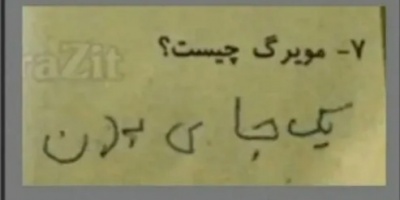 ۷- مویرگ چیست؟
raZit
یک جا ی بدن